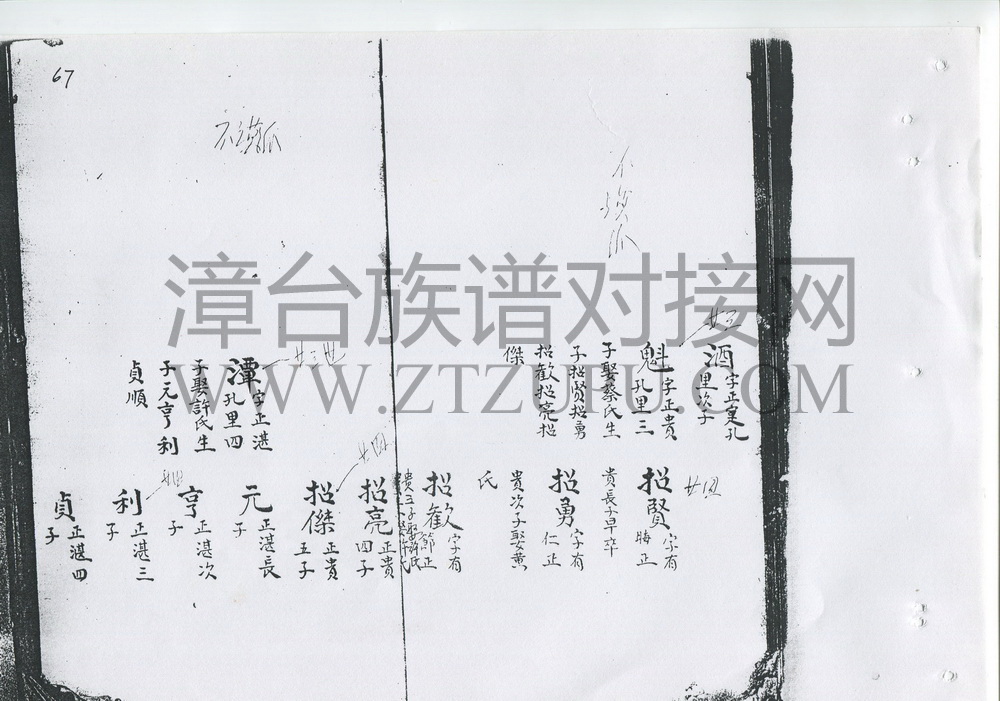 67
漳台族谱对接网
WWW.ZTZUPU.COM
廿三
酒 字正寔孔
里次子
魁 字正貴
孔里三
子娶蔡氏生
子招賢招勇
招歡招亮招
傑
廿四
招賢 字有
正
貴長子早卒
招勇 字有
仁正
貴次子娶黄
氏
招歡 字有
節正
貴三子娶許氏
招亮 正貴
四子
廿四
招傑 正貴
五子
廿三世
潭 字正湛
孔里四
子娶許氏生
子元亨利
貞順
元 正湛長
子
亨 正湛次
子
利 正湛三
子
貞 正湛四
子